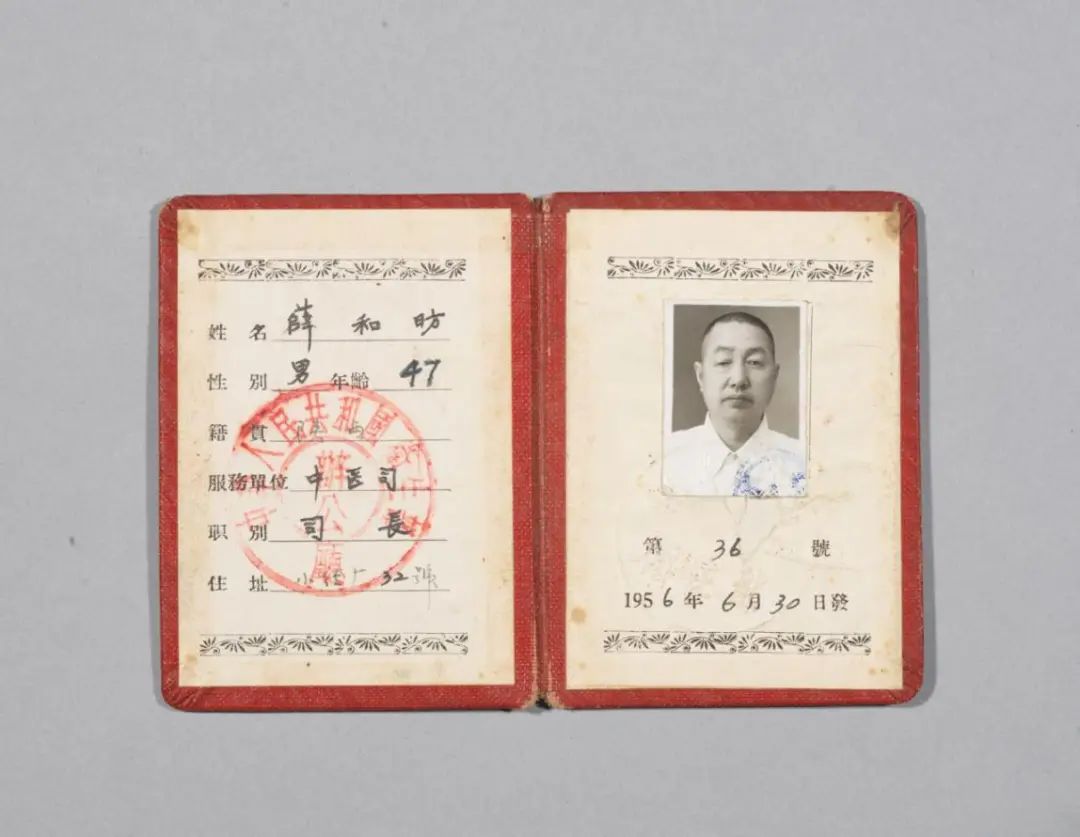 姓 名 薛 和 昉
性 别 男 年龄 47
籍 貫
服務單位 中医司
职 别 司 長
住 址 小 32號
人民共和國
辦公廳
第 36 號
1956年 6月30日發